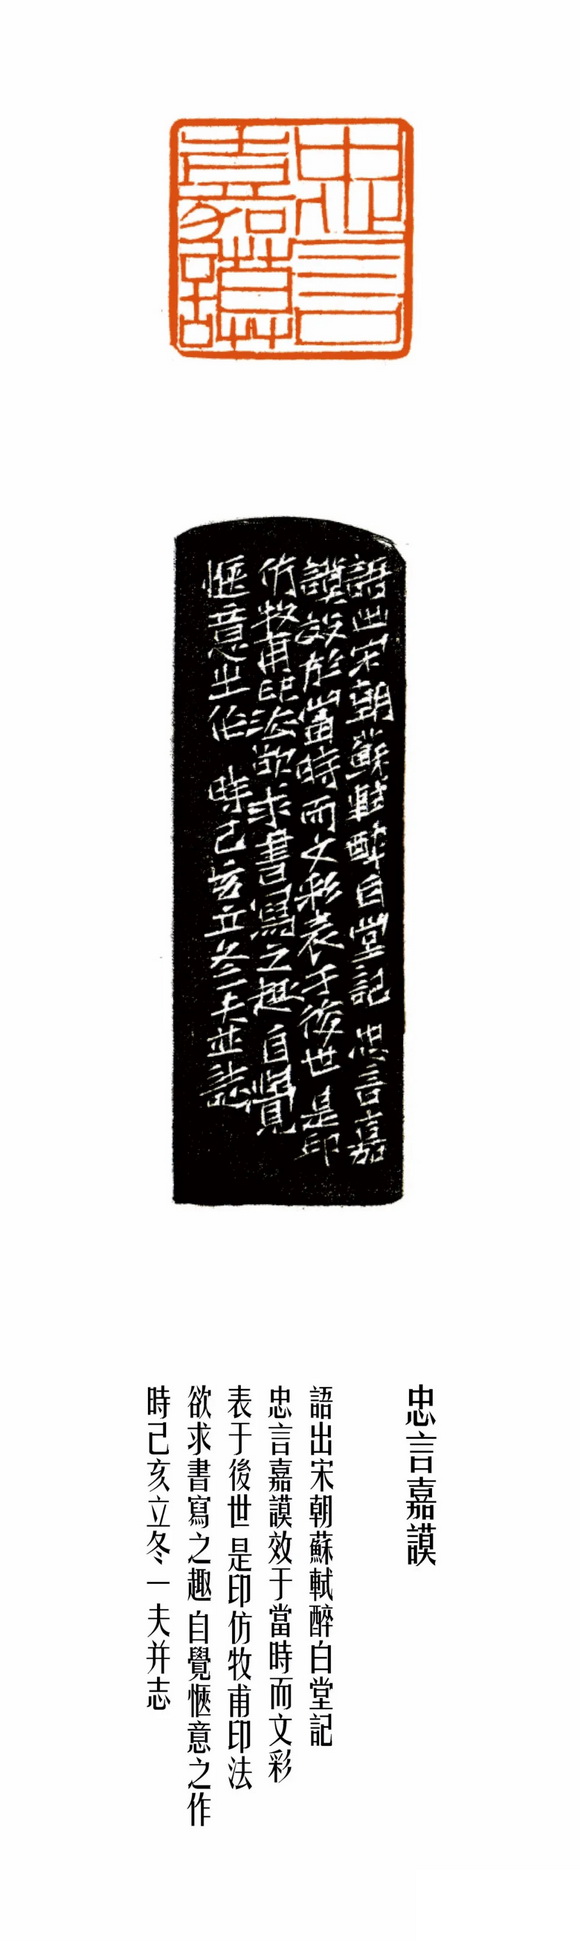 忠言
嘉謨
語出宋朝蘇軾醉白堂記 忠言嘉
謨效於當時而文彩表于後世 是印
仿牧甫印法欲求書寫之趣 自覺
愜意之作 時己亥立冬一夫並誌
忠言嘉謨
語出宋朝蘇軾醉白堂記
忠言嘉謨效于當時而文彩
表于後世 是印仿牧甫印法
欲求書寫之趣 自覺愜意之作
時己亥立冬一夫并志